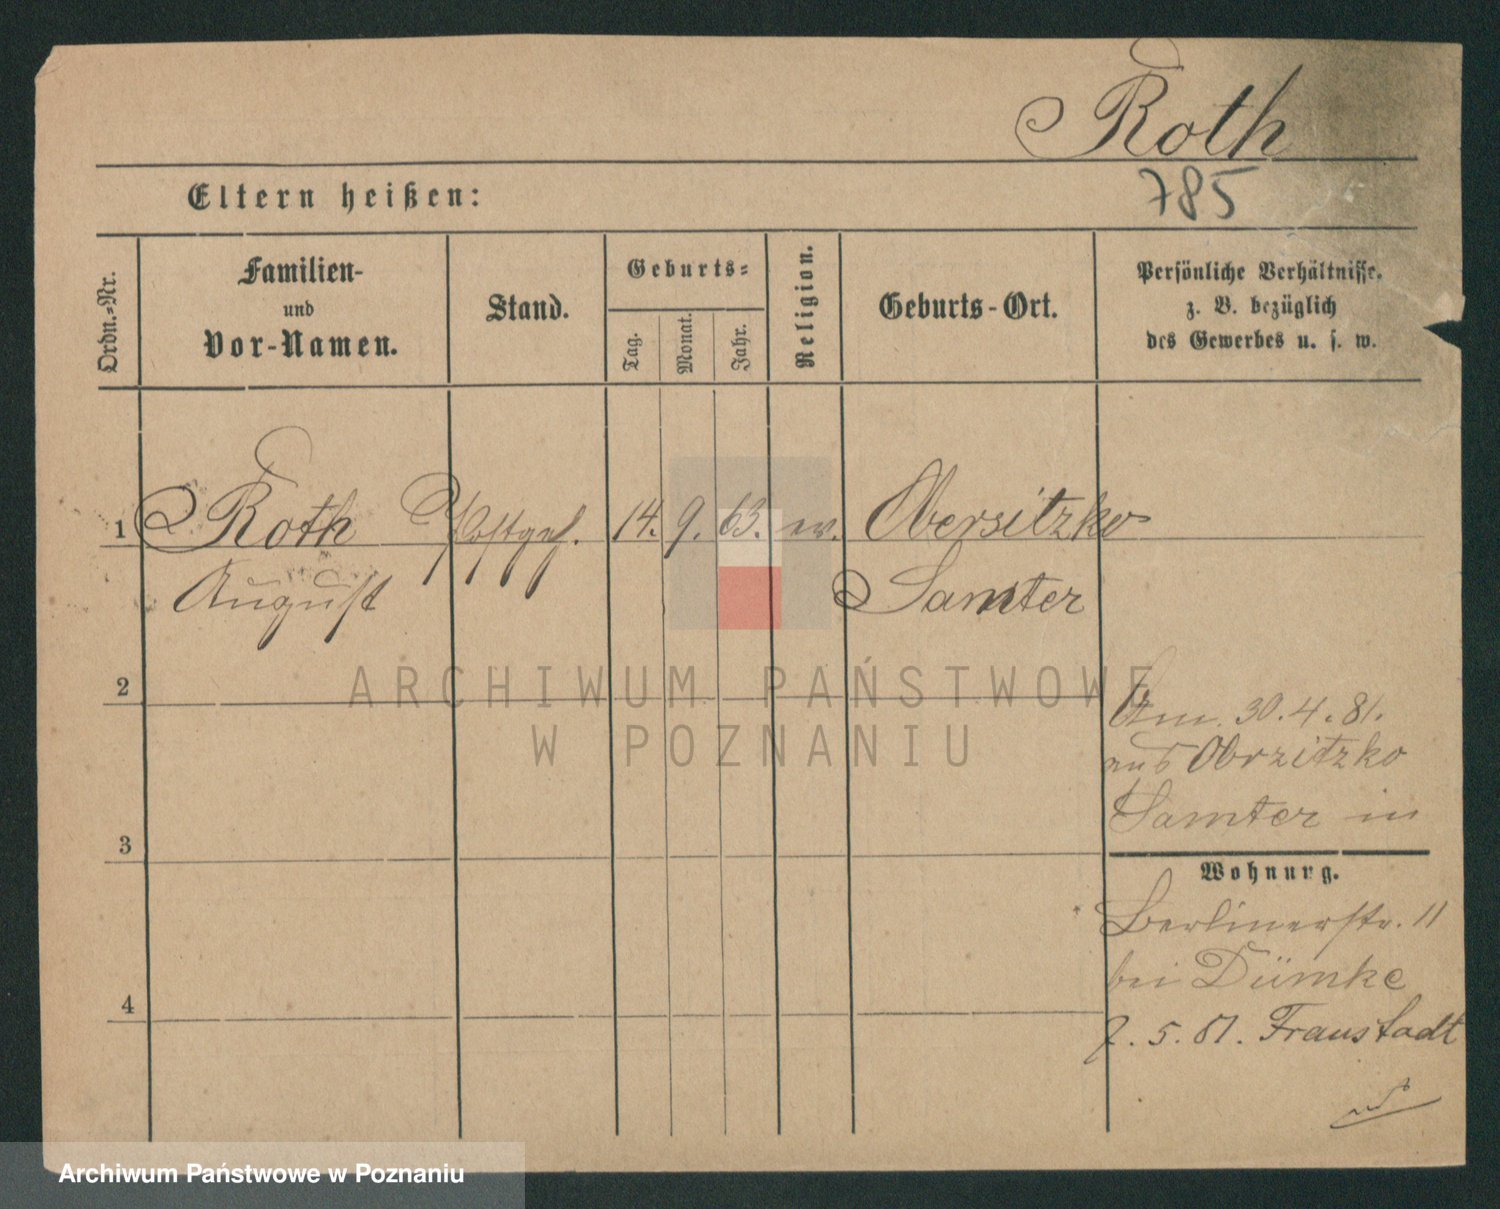 Roth
785
Eltern heißen:
Ordn.-Nr.
Familien-
und
Vor-Namen.
Stand.
Geburts-
Tag.
Monat.
Jahr.
Religion.
Geburts-Ort.
Persönliche Verhältnisse.
z. B. bezüglich
des Gewerbes u. s. w.
1 Roth Postgeh. 14. 9. 63. ev. Obersitzko
August Samter
2
Am 30.4.81.
aus Obrzitzko
3 Samter in
Wohnung.
Berlinerstr. 11
bei Dümke
4
7.5.81. Fraustadt
ARCHIWUM PAŃSTWOWE
W POZNANIU
Archiwum Państwowe w Poznaniu